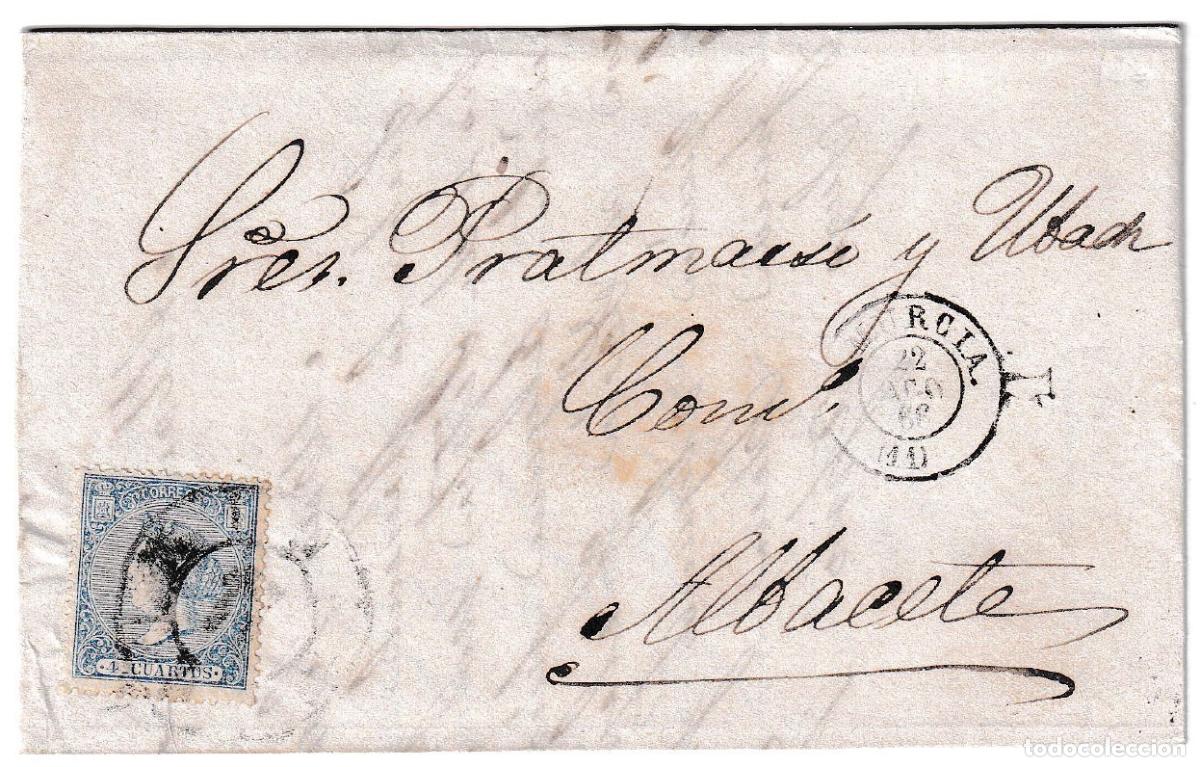 Sres. Pratmarsó y Ubach
Comd.
Albacete
MURCIA.
22
AGO
66
(11)
CORREOS
4 CUARTOS
todocoleccion